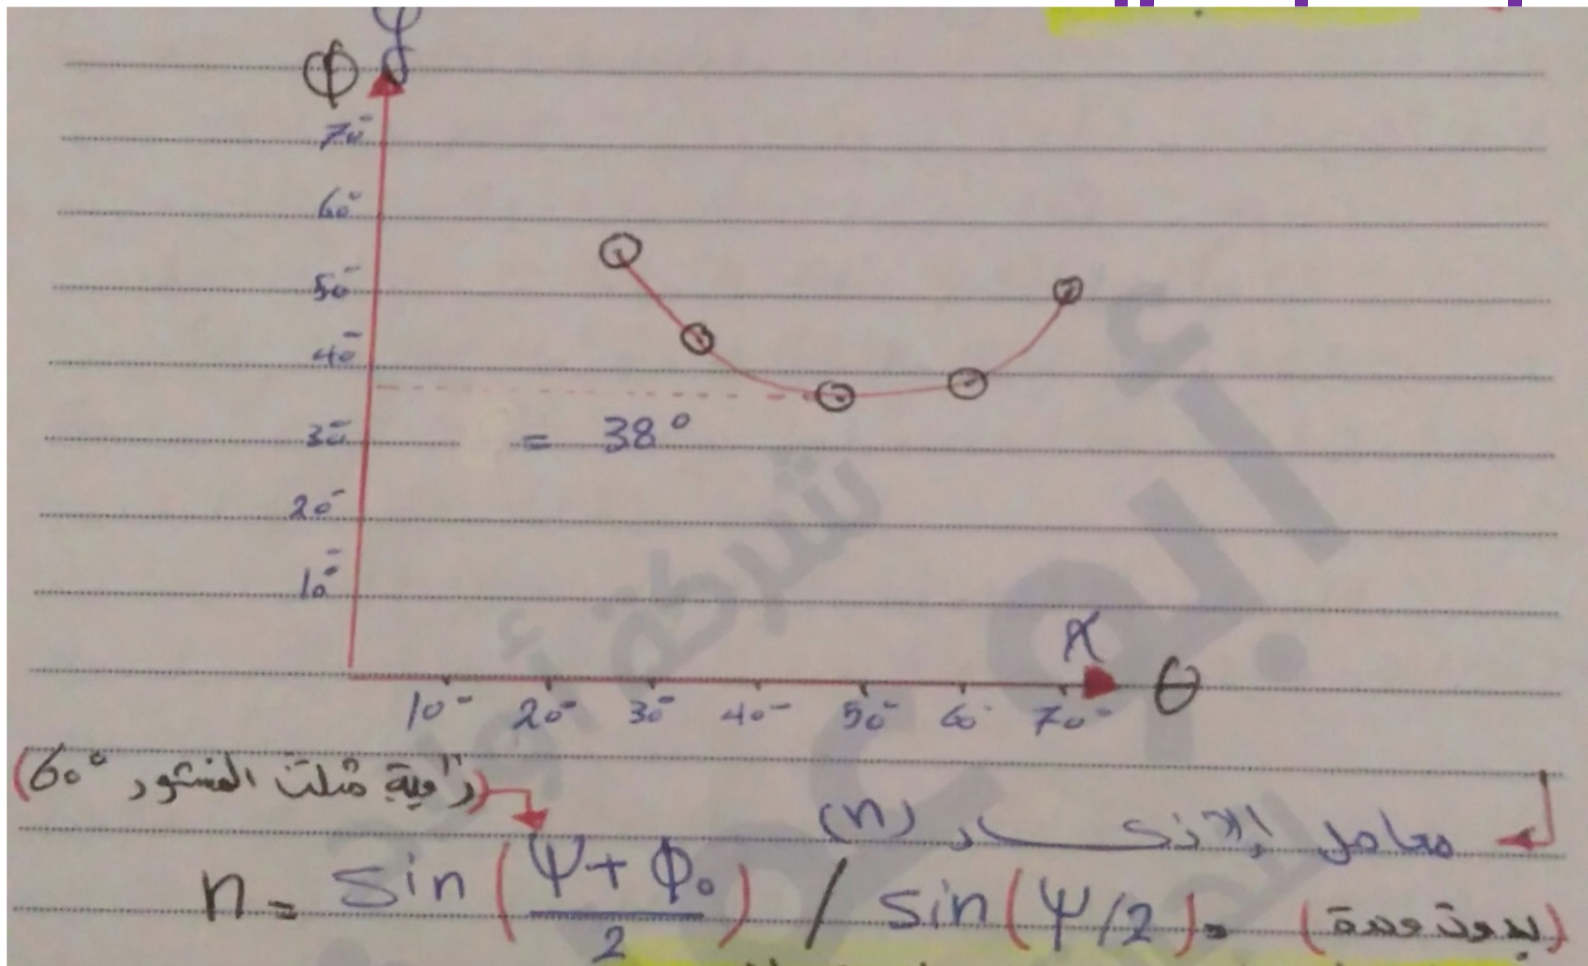 ϕ y
70
60
50
40
= 38°
30
20
10
x
10 20 30 40 50 60 70 θ
(زاوية مثلث المنشور 60°)
معامل الانكسار (n)
n = sin (ψ + ϕ₀ / 2) / sin (ψ/2) = (بدون وحدة)
شركة أبو